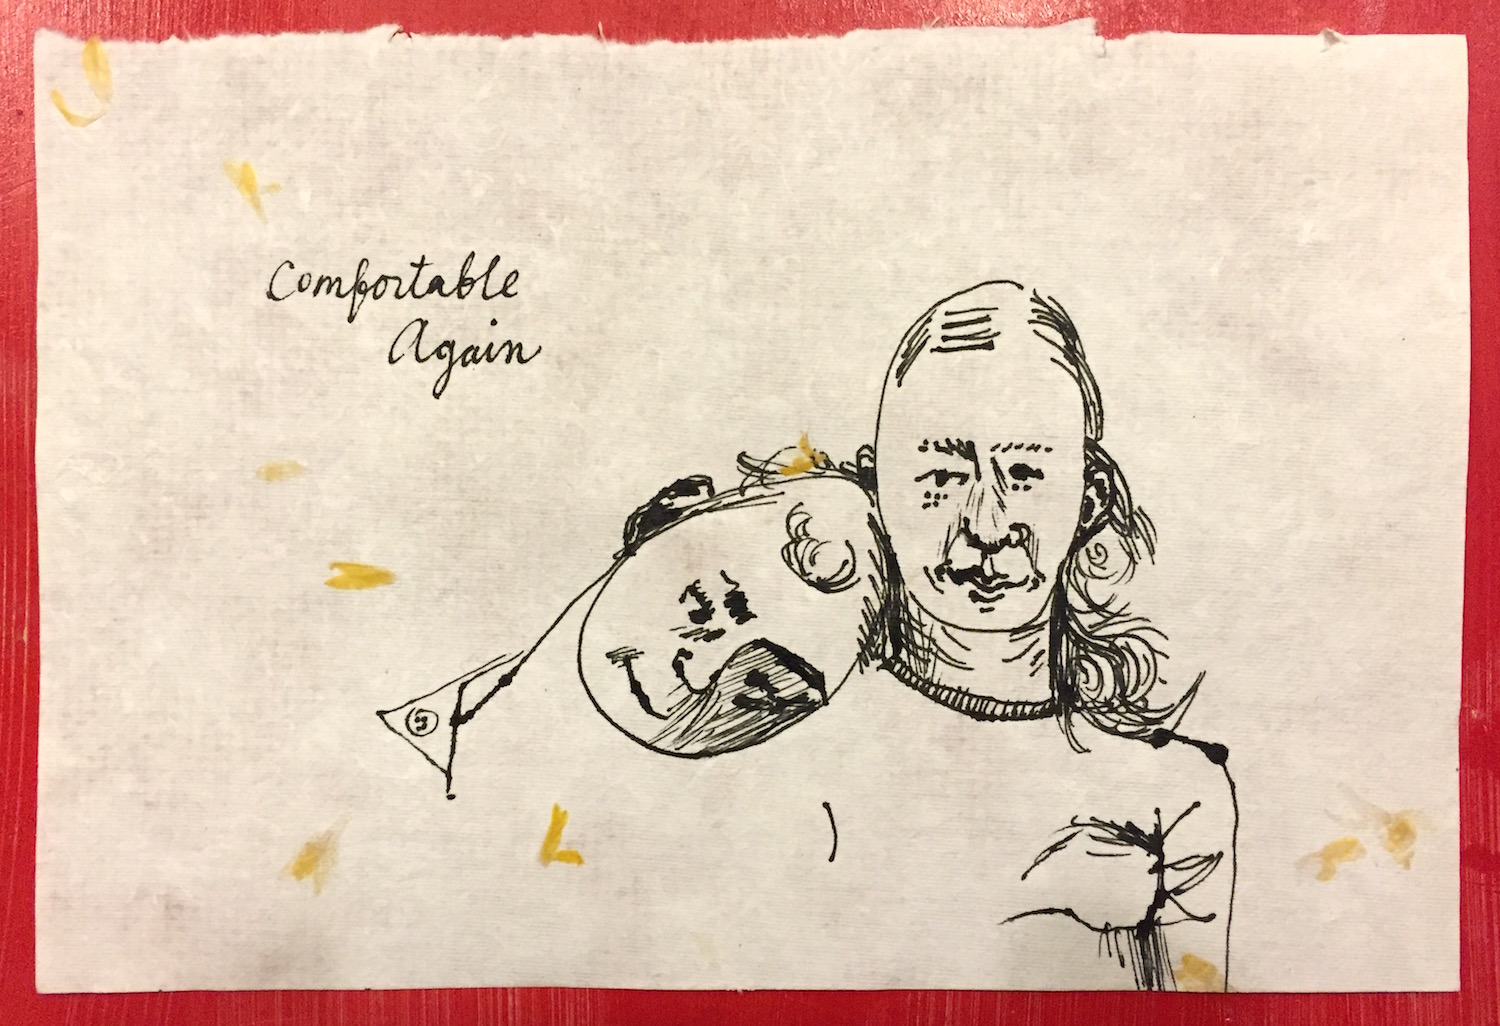 Comfortable
Again